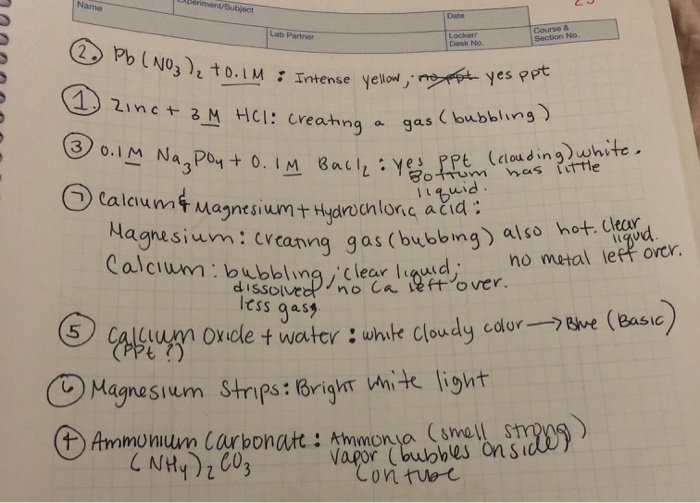 Name
Experiment/Subject
Date
Lab Partner
Locker/
Desk No.
Course &
Section No.
② Pb(NO3)2 + 0.1M : Intense yellow, no ppt yes ppt
① Zinc + 3 M HCl: creating a gas (bubbling)
③ 0.1 M Na3PO4 + 0.1 M BaCl2 : yes ppt (clouding) white.
Bottum has little
liquid.
⑦ Calcium & Magnesium + Hydrochloric acid :
Magnesium: creating gas (bubbing) also hot. Clear
liquid.
no metal left over.
Calcium: bubbling, clear liquid;
dissolved no Ca left over.
less gass
⑤ Calcium Oxide + water : white cloudy color → Blue (Basic)
(PPt?)
⑥ Magnesium Strips: Bright white light
④ Ammonium Carbonate : Ammonia (smell strong)
(NH4)2CO3 Vapor (bubbles on sides)
(on tube